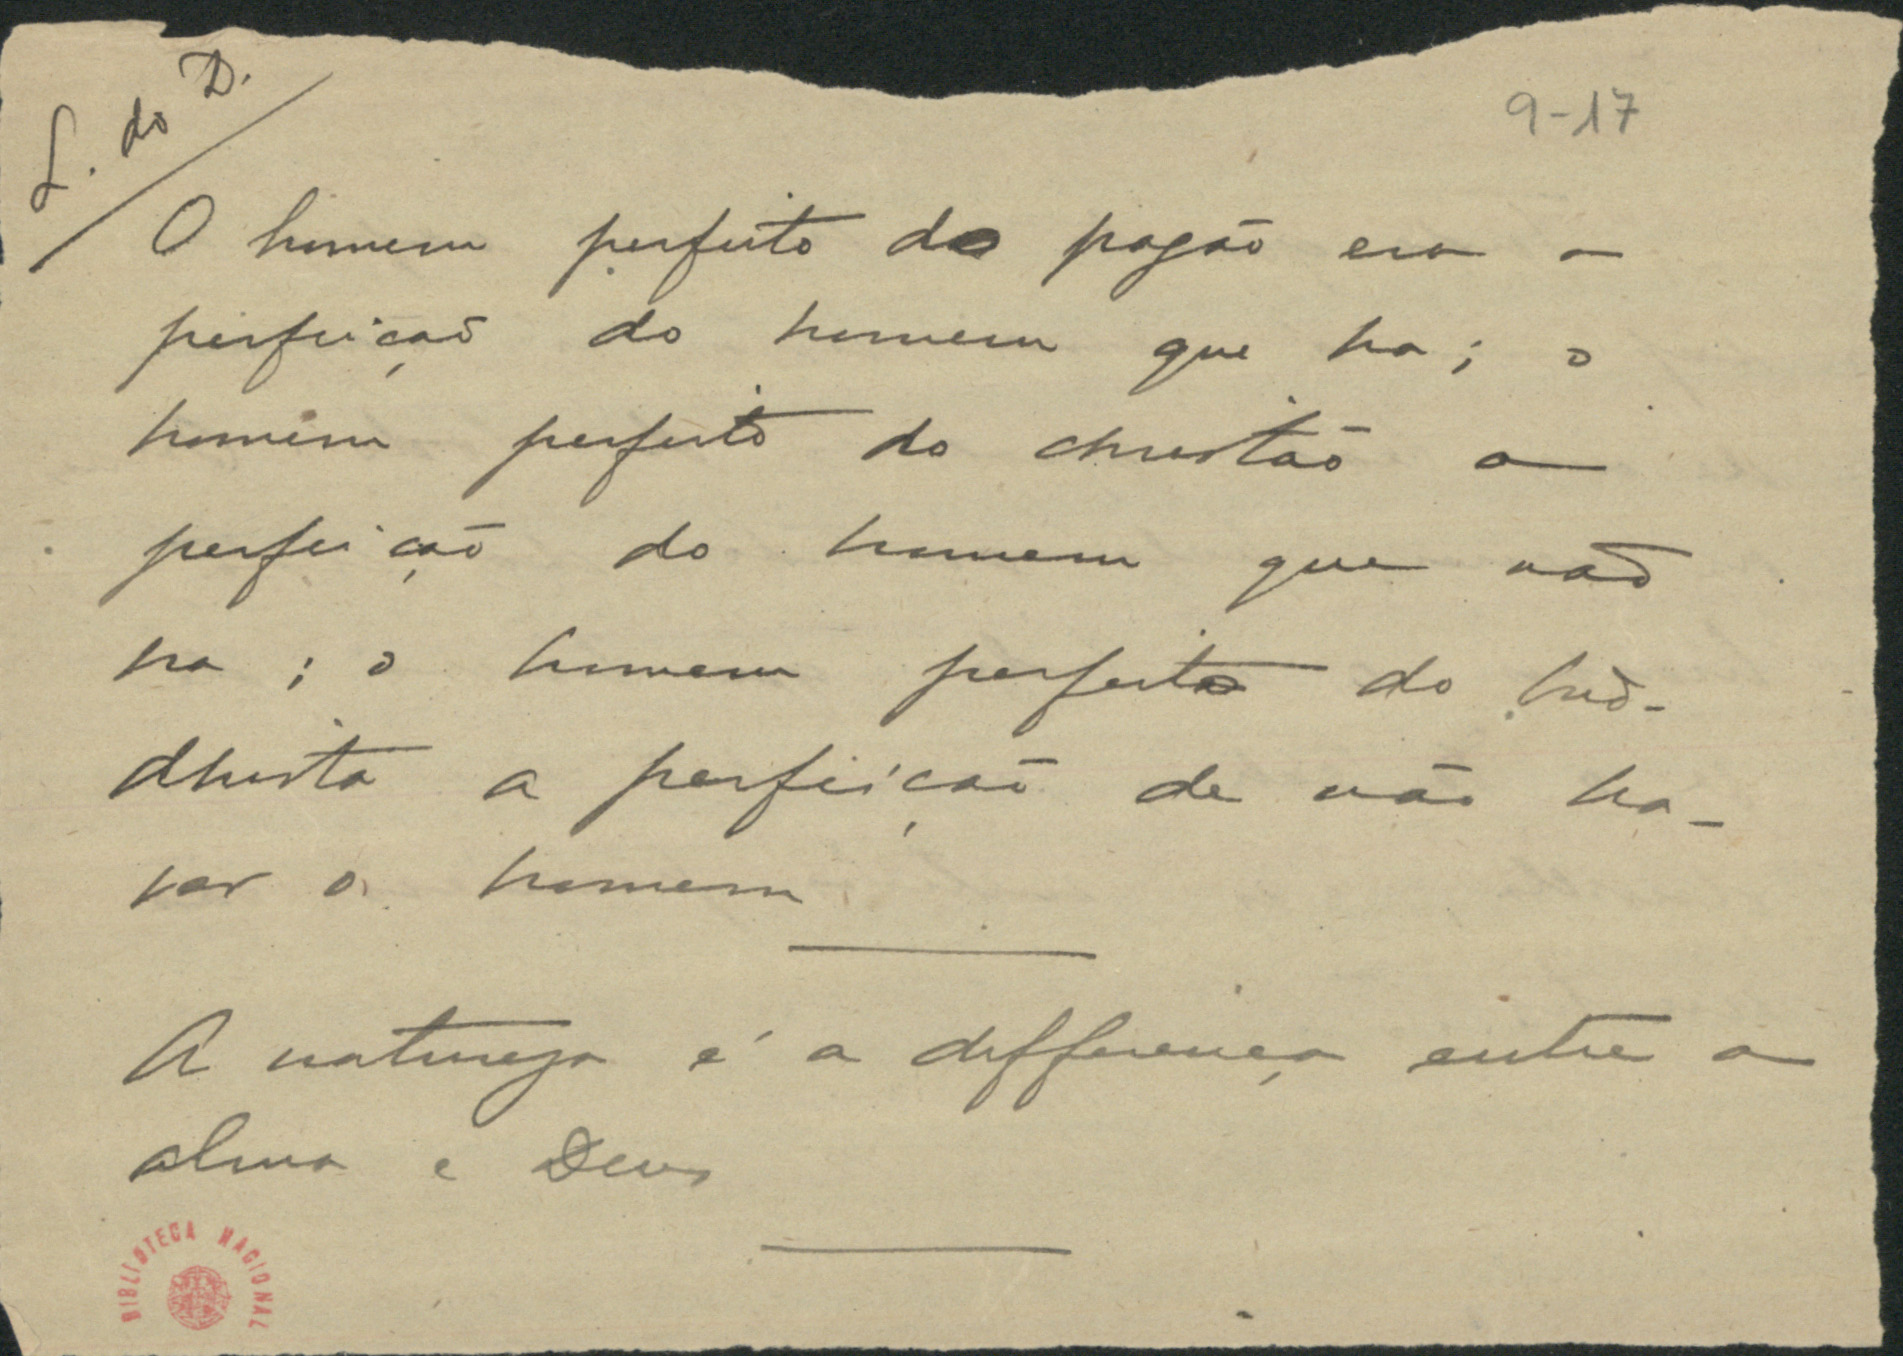 L. do D.
9-17
O homem perfeito do pagão era a
perfeição do homem que ha; o
homem perfeito do christão a
perfeição do homem que não
ha; o homem perfeito do bud-
dhista a perfeição de não ha-
ver o homem
A natureza é a differença entre a
alma e Deus
BIBLIOTECA NACIONAL